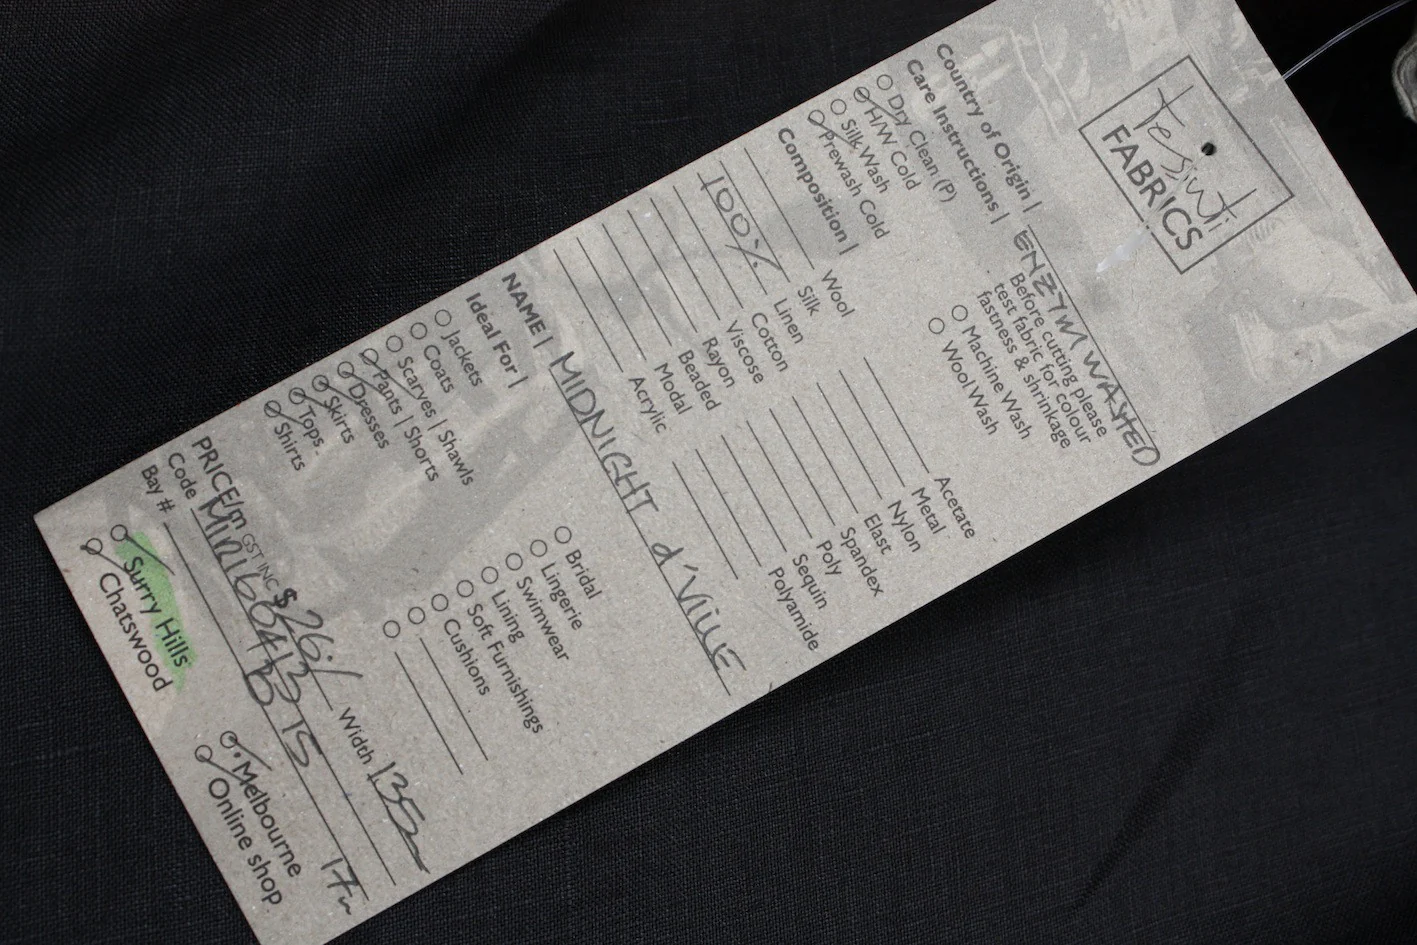 tessuti
FABRICS
Country of Origin | ENZYM WASHED
Care Instructions | Before cutting please
test fabric for colour
fastness & shrinkage
Dry Clean (P)
H/W Cold
Silk Wash
Prewash Cold
Machine Wash
Wool Wash
Composition |
Wool
Silk
100% Linen
Cotton
Viscose
Rayon
Beaded
Modal
Acrylic
Acetate
Metal
Nylon
Elast
Spandex
Poly
Sequin
Polyamide
NAME | MIDNIGHT d'VILLE
Ideal For |
Jackets
Coats
Scarves | Shawls
Pants | Shorts
Dresses
Skirts
Tops
Shirts
Bridal
Lingerie
Swimwear
Lining
Soft Furnishings
Cushions
PRICE/m GST INC $ 26./ Width 135
Code
Bay #
Surry Hills
Chatswood
Melbourne
Online shop